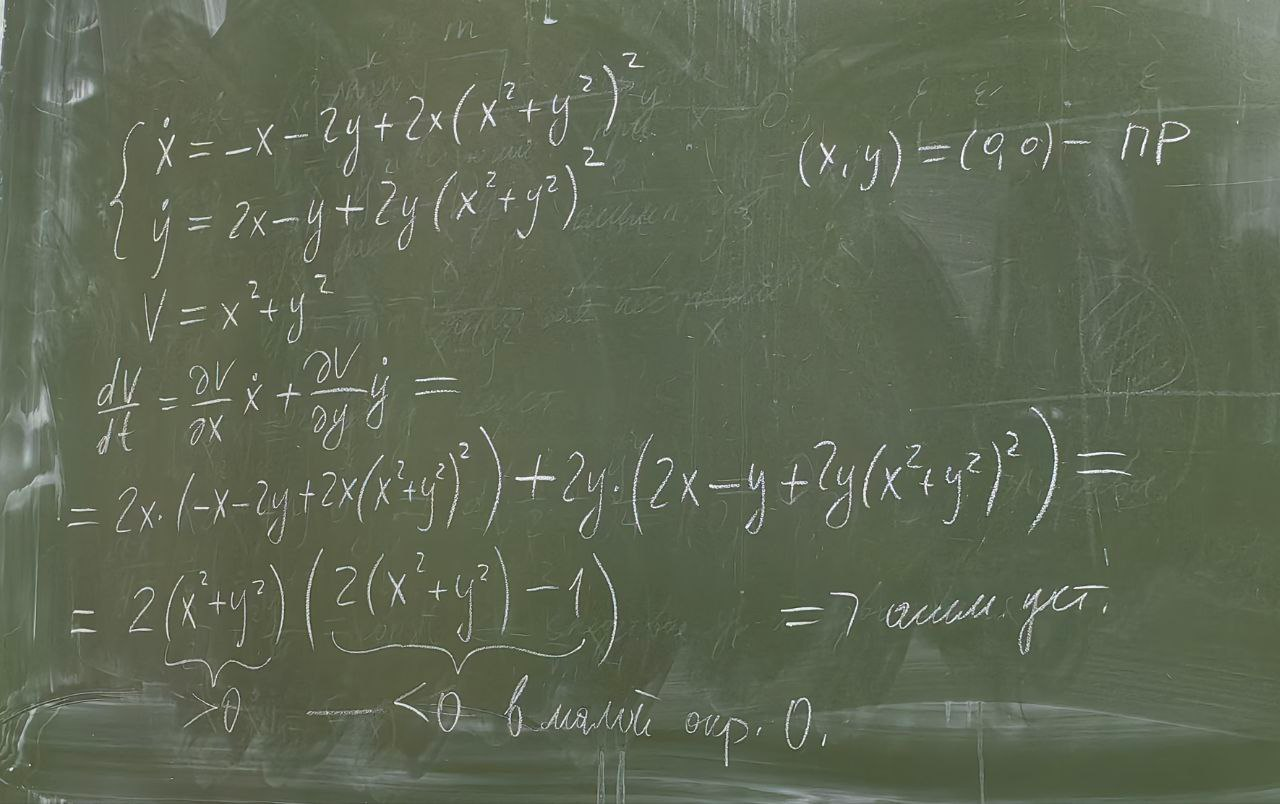 ẋ = -x - 2y + 2x(x² + y²)²
(x, y) = (0, 0) - ПР
ẏ = 2x - y + 2y(x² + y²)²
V = x² + y²
dV/dt = ∂V/∂x ẋ + ∂V/∂y ẏ =
= 2x · (-x - 2y + 2x(x² + y²)²) + 2y · (2x - y + 2y(x² + y²)²) =
= 2(x² + y²)(2(x² + y²) - 1) => асим. уст.
>0 — <0 в малой окр. 0.